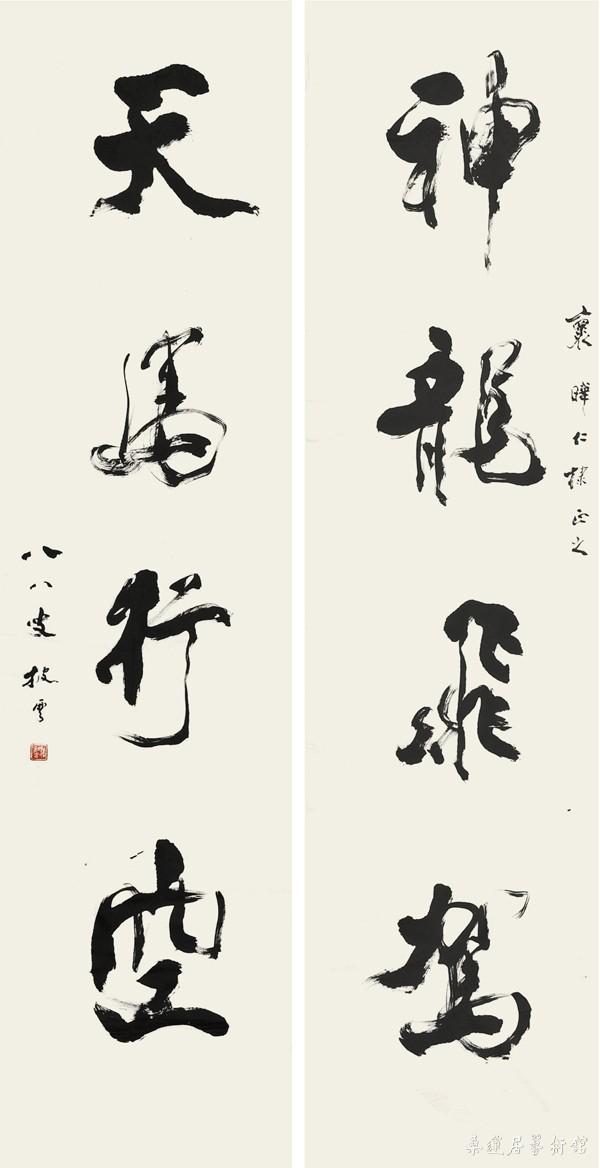 神龍飛駕
襄曄仁棣正之
天馬行空
八八叟披雲
桑蓮居藝術館